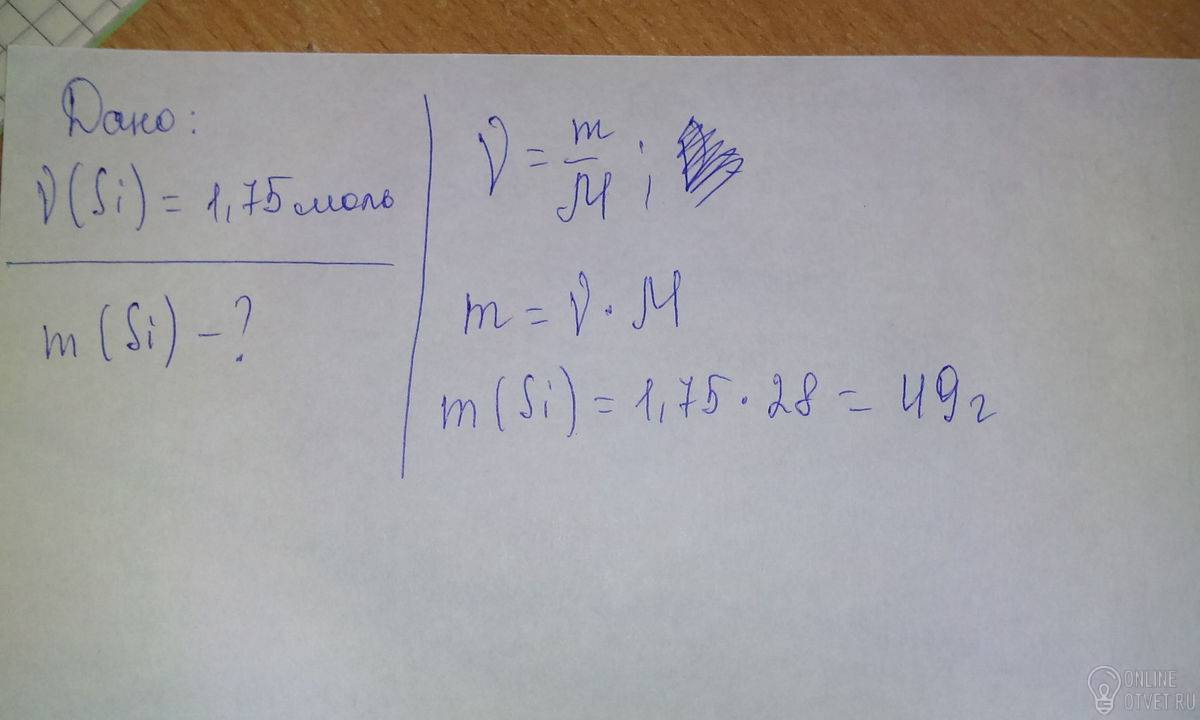 Дано:
ν(Si) = 1,75 моль
m (Si) – ?
ν = m/M ;
m = ν · M
m (Si) = 1,75 · 28 = 49 г
ONLINE
OTVET.RU